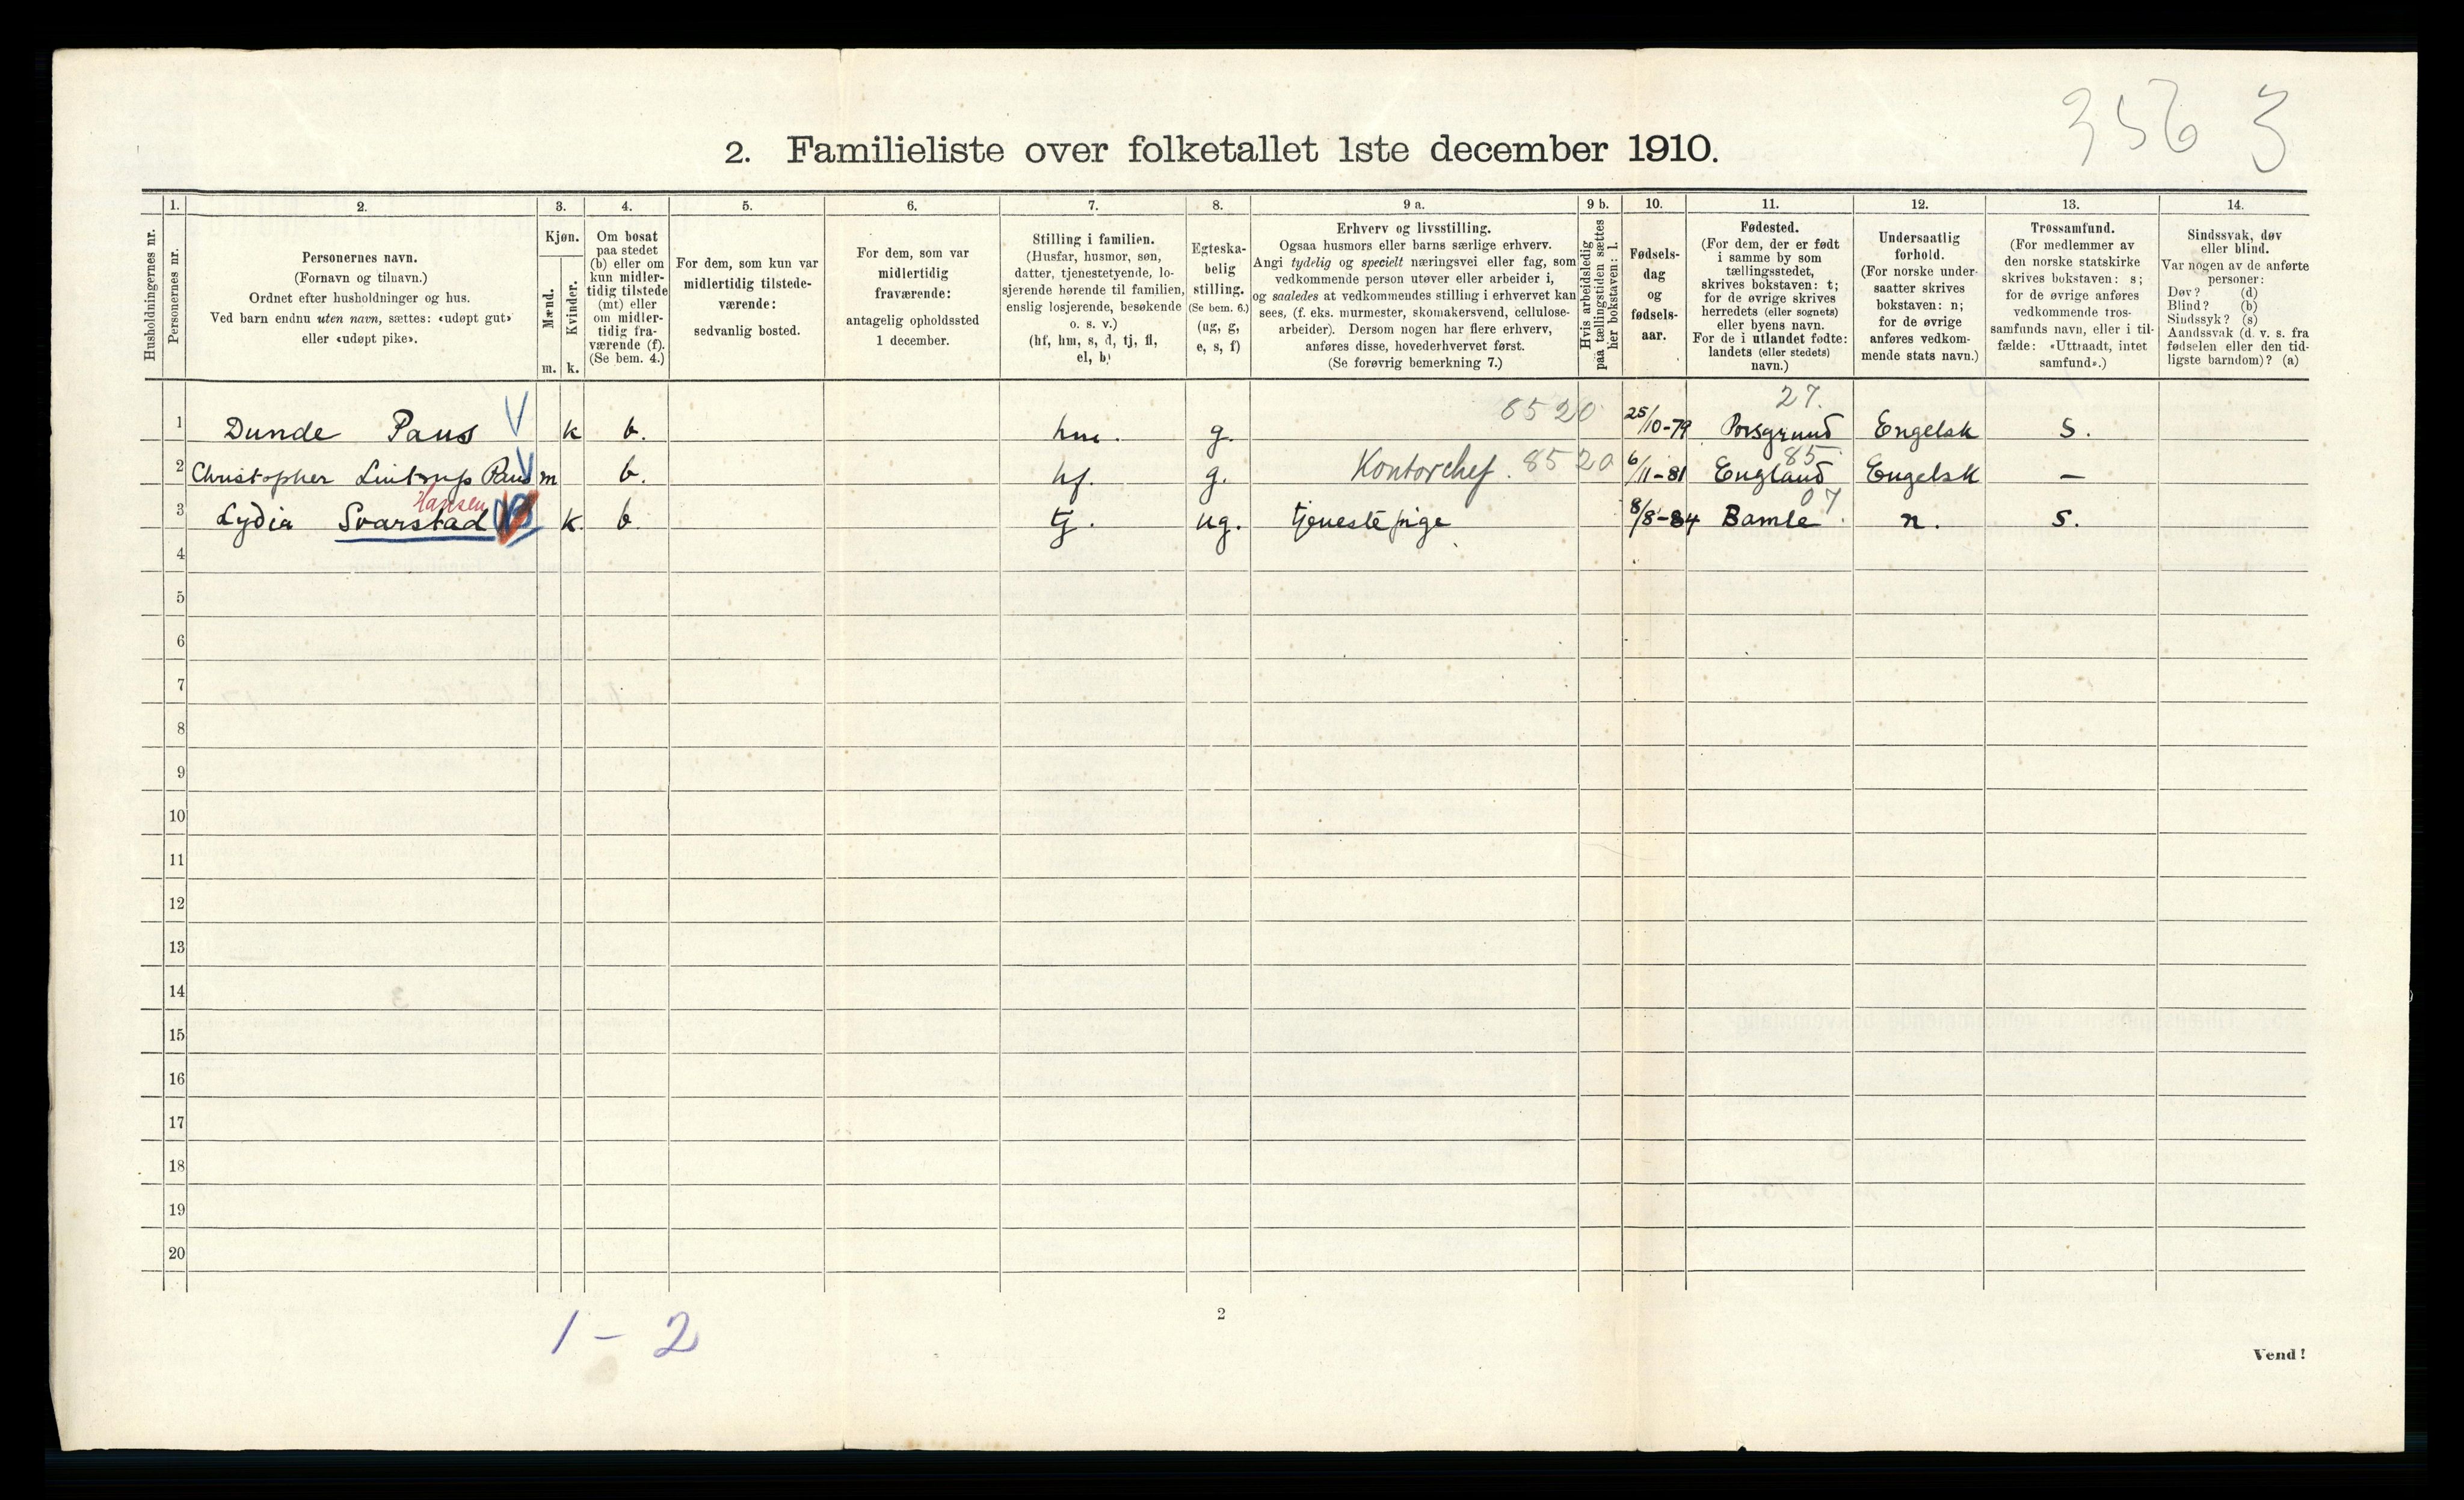 356 3
2. Familieliste over folketallet 1ste december 1910.
1. 2. 3. 4. 5. 6. 7. 8. 9 a. 9 b. 10. 11. 12. 13. 14.
Husholdningernes nr.
Personernes nr.
Personernes navn.
(Fornavn og tilnavn.)
Ordnet efter husholdninger og hus.
Ved barn endnu uten navn, sættes: «udøpt gut»
eller «udøpt pike».
Kjøn.
Mænd.
Kvinder.
m. k.
Om bosat
paa stedet
(b) eller om
kun midler-
tidig tilstede
(mt) eller
om midler-
tidig fra-
værende (f).
(Se bem. 4.)
For dem, som kun var
midlertidig tilstede-
værende:
sedvanlig bosted.
For dem, som var
midlertidig
fraværende:
antagelig opholdssted
1 december.
Stilling i familien.
(Husfar, husmor, søn,
datter, tjenestetyende, lo-
sjerende hørende til familien,
enslig losjerende, besøkende
o. s. v.)
(hf, hm, s, d, tj, fl,
el, b)
Egteska-
belig
stilling.
(Se bem. 6.)
(ug, g,
e, s, f)
Erhverv og livsstilling.
Ogsaa husmors eller barns særlige erhverv.
Angi tydelig og specielt næringsvei eller fag, som
vedkommende person utøver eller arbeider i,
og saaledes at vedkommendes stilling i erhvervet kan
sees, (f. eks. murmester, skomakersvend, cellulose-
arbeider). Dersom nogen har flere erhverv,
anføres disse, hovederhvervet først.
(Se forøvrig bemerkning 7.)
Hvis arbeidsledig
paa tællingstiden sættes
her bokstaven: l.
Fødsels-
dag
og
fødsels-
aar.
Fødested.
(For dem, der er født
i samme by som
tællingsstedet,
skrives bokstaven: t;
for de øvrige skrives
herredets (eller sognets)
eller byens navn.
For de i utlandet fødte:
landets (eller stedets)
navn.)
Undersaatlig
forhold.
(For norske under-
saatter skrives
bokstaven: n;
for de øvrige
anføres vedkom-
mende stats navn.)
Trossamfund.
(For medlemmer av
den norske statskirke
skrives bokstaven: s;
for de øvrige anføres
vedkommende tros-
samfunds navn, eller i til-
fælde: «Uttraadt, intet
samfund».)
Sindssvak, døv
eller blind.
Var nogen av de anførte
personer:
Døv? (d)
Blind? (b)
Sindssyk? (s)
Aandssvak (d. v. s. fra
fødselen eller den tid-
ligste barndom)? (a)
8520 27.
1 Dunde Paus k b. hm. g. 25/10-79 Porsgrund Engelsk S.
85
2 Christopher Lintrup Paus m b. hf. g. Kontorchef. 8520 6/11-81 England Engelsk —
Hansen 07
3 Lydia Svarstad k. b tj. ug. tjenestepige 8/8-84 Bamle. n. s.
4
5
6
7
8
9
10
11
12
13
14
15
16
17
18
19
20
1 - 2
2
Vend!